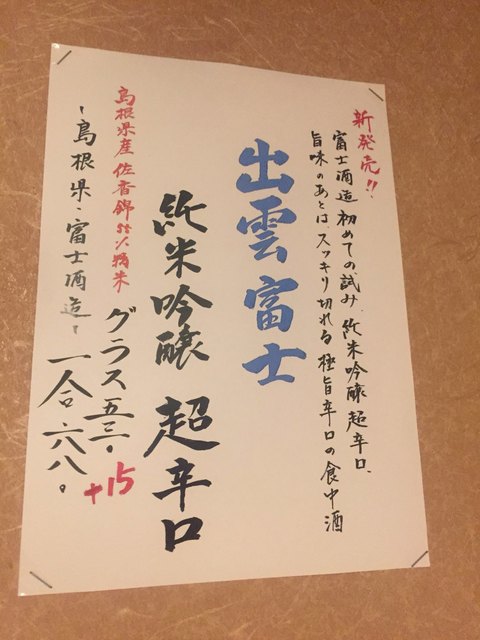 新発売!!
富士酒造 初めての試み、純米吟醸 超辛口、
旨味のあとは、スッキリ切れる 極旨辛口の食中酒
出雲富士
純米吟醸 超辛口
+15
島根県産 佐香錦55%精米
グラス五三〇
〜島根県・富士酒造〜
一合六八〇